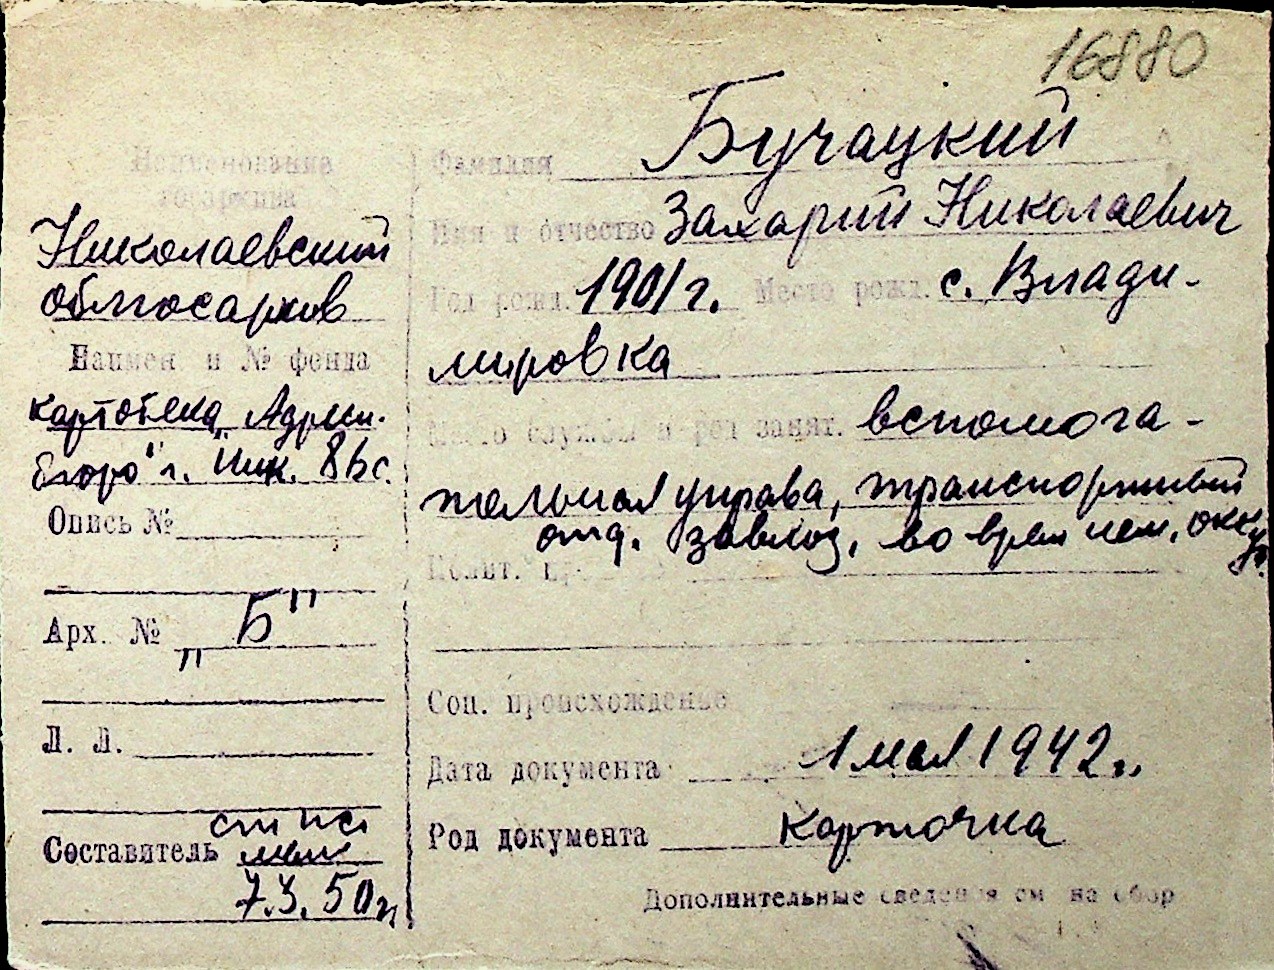 16880
Наименование
госархива
Николаевский
облгосархив
Наимен и № фонда
картотека „Адресн.
бюро" г. Ник.
Опись №
Арх. № „Б"
Л. Л.
Составитель
7.3.50г
Фамилия Бучацкий
Имя и отчество Захарий Николаевич
Год рожд. 1901г. Место рожд. с. Влади-
мировка
Место службы и род занят. вспомога-
тельная управа, транспортный
отд. завхоз, во время нем. оккуп.
Полит.
Соц. происхождение
Дата документа 1 мая 1942г.
Род документа карточка
Дополнительные сведения см на обор